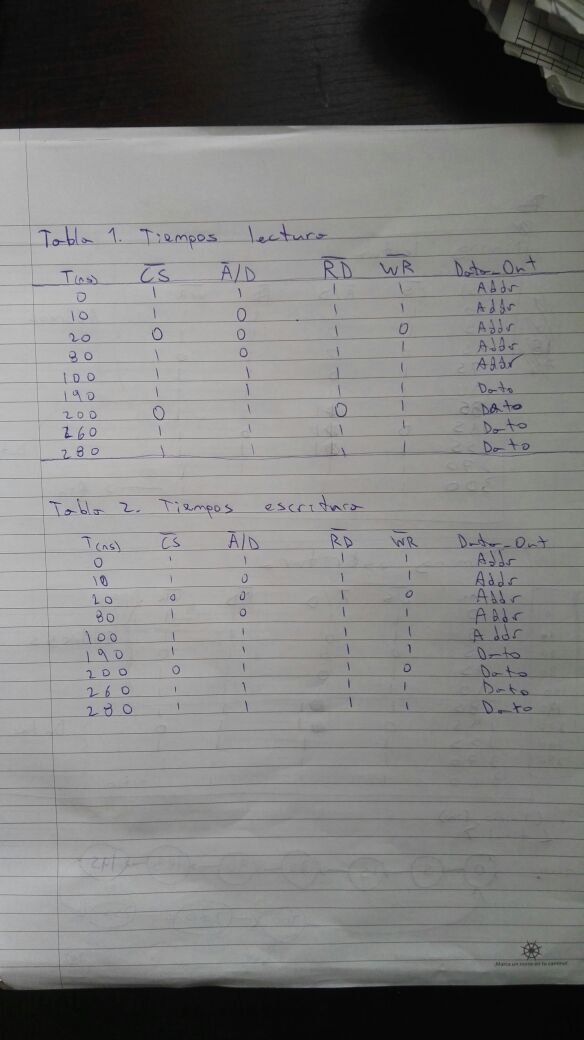 Tabla 1. Tiempos lectura
T(ns) C̅S̅ A̅/D R̅D̅ W̅R̅ Data_Out
0 1 1 1 1 Addr
10 1 0 1 1 Addr
20 0 0 1 0 Addr
80 1 0 1 1 Addr
100 1 1 1 1 Addr
190 1 1 1 1 Dato
200 0 1 0 1 Dato
260 1 1 1 1 Dato
280 1 1 1 1 Dato
Tabla 2. Tiempos escritura
T(ns) C̅S̅ A̅/D R̅D̅ W̅R̅ Data_Out
0 1 1 1 1 Addr
10 1 0 1 1 Addr
20 0 0 1 0 Addr
80 1 0 1 1 Addr
100 1 1 1 1 Addr
190 1 1 1 1 Dato
200 0 1 1 0 Dato
260 1 1 1 1 Dato
280 1 1 1 1 Dato